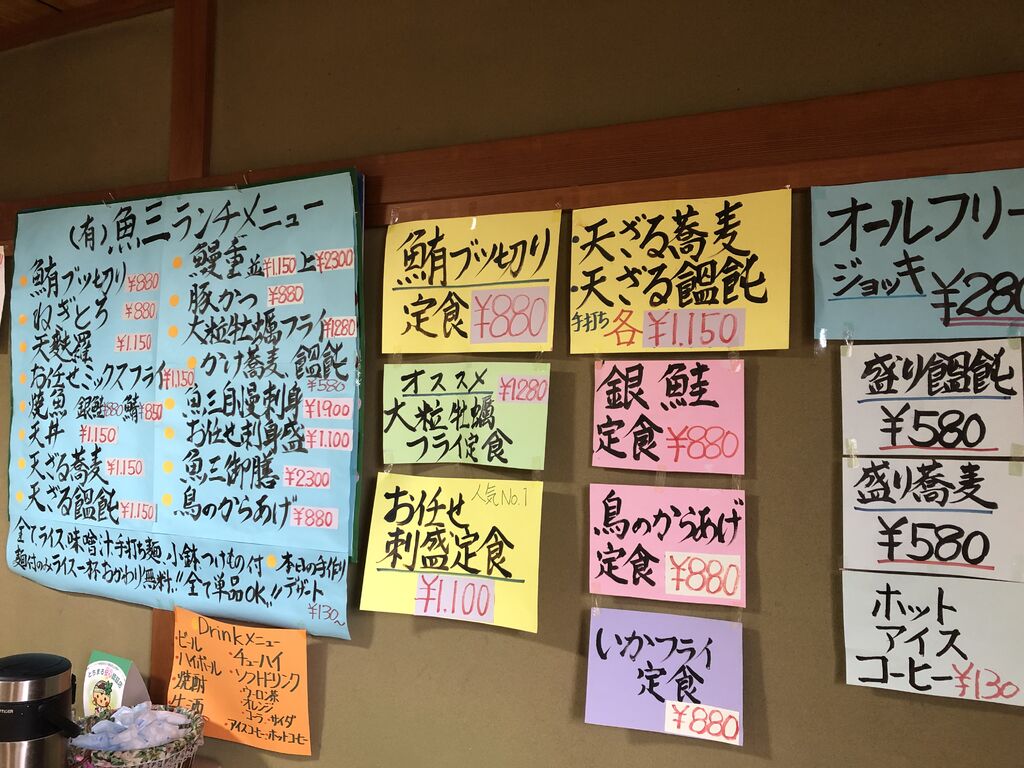 (有)魚三ランチメニュー
鮪ブツ切り ¥880
ねぎとろ ¥880
天麩羅 ¥1.150
お任せミックスフライ ¥1.150
焼魚 銀鮭¥880 鯖¥850
天丼 ¥1.150
天ざる蕎麦 ¥1.150
天ざる饂飩 ¥1.150
鰻重 並¥1.150 上¥2300
豚かつ ¥880
大粒牡蠣フライ ¥1280
かけ蕎麦 饂飩
¥580
魚三自慢刺身 ¥1900
お任せ刺身盛 ¥1.100
魚三御膳 ¥2300
鳥のからあげ ¥880
全てライス味噌汁手打ち麺.小鉢つけもの付
麺付のみライス一杯おかわり無料!!全て単品OK!!
本日の手作り
デザート
¥130~
Drinkメニュー
・ビール
・ハイボール
・焼酎
・チューハイ
・ソフトドリンク
・ウーロン茶
・オレンジ
・コーラ・サイダ
・アイスコーヒー・ホットコーヒー
鮪ブツ切り
定食 ¥880
オススメ ¥1280
大粒牡蠣
フライ定食
人気No.1
お任せ
刺盛定食
¥1.100
・天ざる蕎麦
・天ざる饂飩
手打ち 各 ¥1.150
銀鮭
定食 ¥880
鳥のからあげ
定食 ¥880
いかフライ
定食
¥880
オールフリー
ジョッキ ¥280
盛り饂飩
¥580
盛り蕎麦
¥580
ホット
アイス
コーヒー ¥130